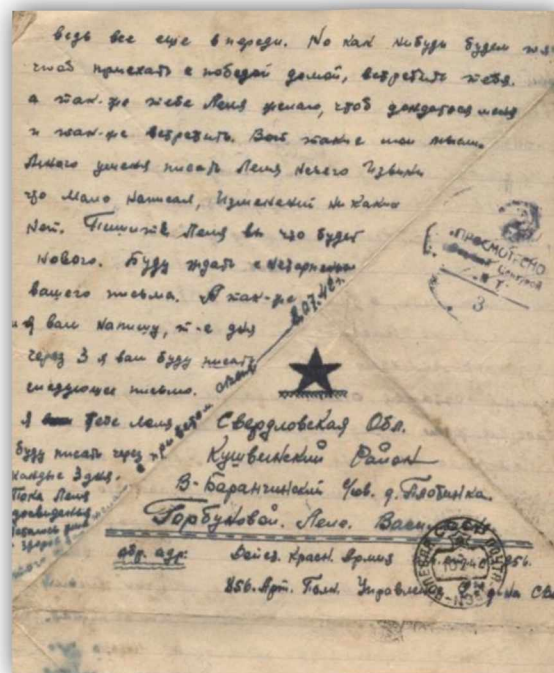 ведь все еще в переди. Но как нибудь будем
чтоб приехать с победой домой, встретить тебя.
а так-же тебе Леля желаю, чтоб дождаться меня
и так-же встретить. Вот такие мои мысли.
Много уменя писать Леля нечего Извини
что мало написал, Изменений ни каких
нет. Пишите Леля вы что будет
нового. Буду ждать с нетерпением
вашего письма. А так-же
я вам напишу, т-е дня
через 3 я вам буду писать
следующее письмо.
Я Тебе Леля
буду писать через
каждые 3 дня.
Пока Леля
досвиданья
с приветом
ПРОСМОТРЕНО
Военной Цензурой
3
Свердловская Обл.
Кушвинский Район
В-Баранчинский д.
Горбуновой. Леле.
обр. адр: Действ. Красн. Армия
856. Арт. Полк. Управление
ПОЛЕВАЯ ПОЧТА